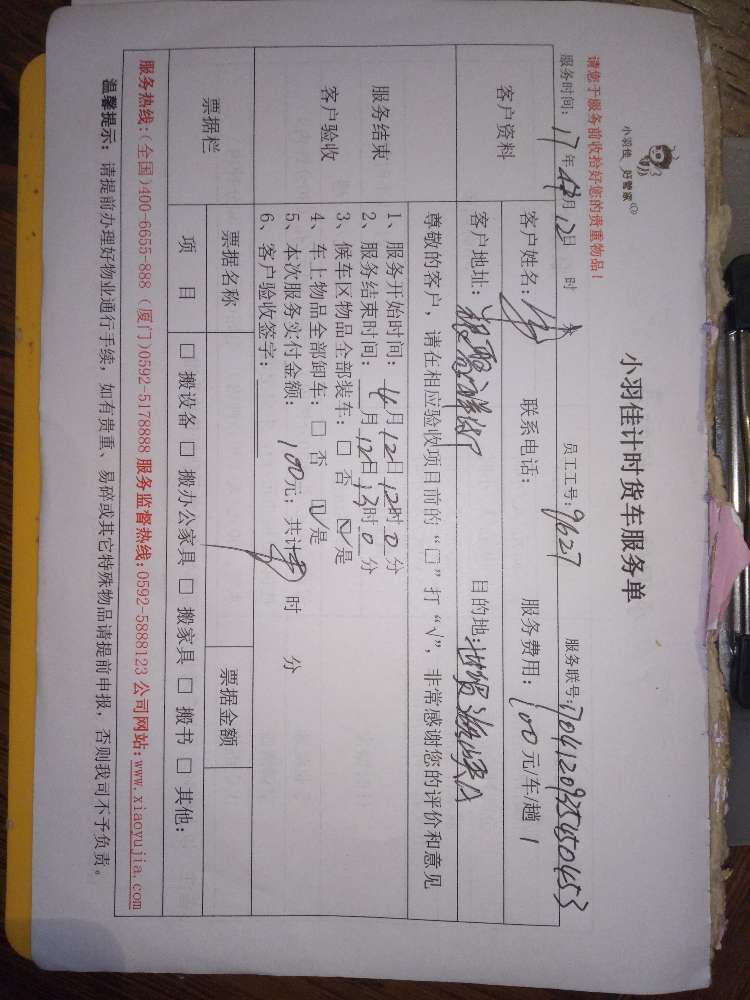 小羽佳 好管家
小羽佳计时货车服务单
请您于服务前收拾好您的贵重物品！
服务时间：17年4月12日 时 员工工号：9627 服务联号：
客户资料
客户姓名： 联系电话： 服务费用：100元/车/趟 1
客户地址： 目的地：
服务结束
客户验收
尊敬的客户，请在相应验收项目前的“□”打“√”，非常感谢您的评价和意见
1、服务开始时间：4月12日12时0分
2、服务结束时间： 月12日13时0分
3、候车区物品全部装车：□ 否 ☑ 是
4、车上物品全部卸车：□ 否 ☑ 是
5、本次服务实付金额：100元；共计 时 分
6、客户验收签字：
票据栏
票据名称 票据金额
项 目 □ 搬设备 □ 搬办公家具 □ 搬家具 □ 搬书 □ 其他：
服务热线：(全国)400-6655-888 (厦门)0592-5178888 服务监督热线：0592-5888123 公司网站：www.xiaoyujia.com
温馨提示：请提前办理好物业通行手续，如有贵重、易碎或其它特殊物品请提前申报，否则我司不予负责。